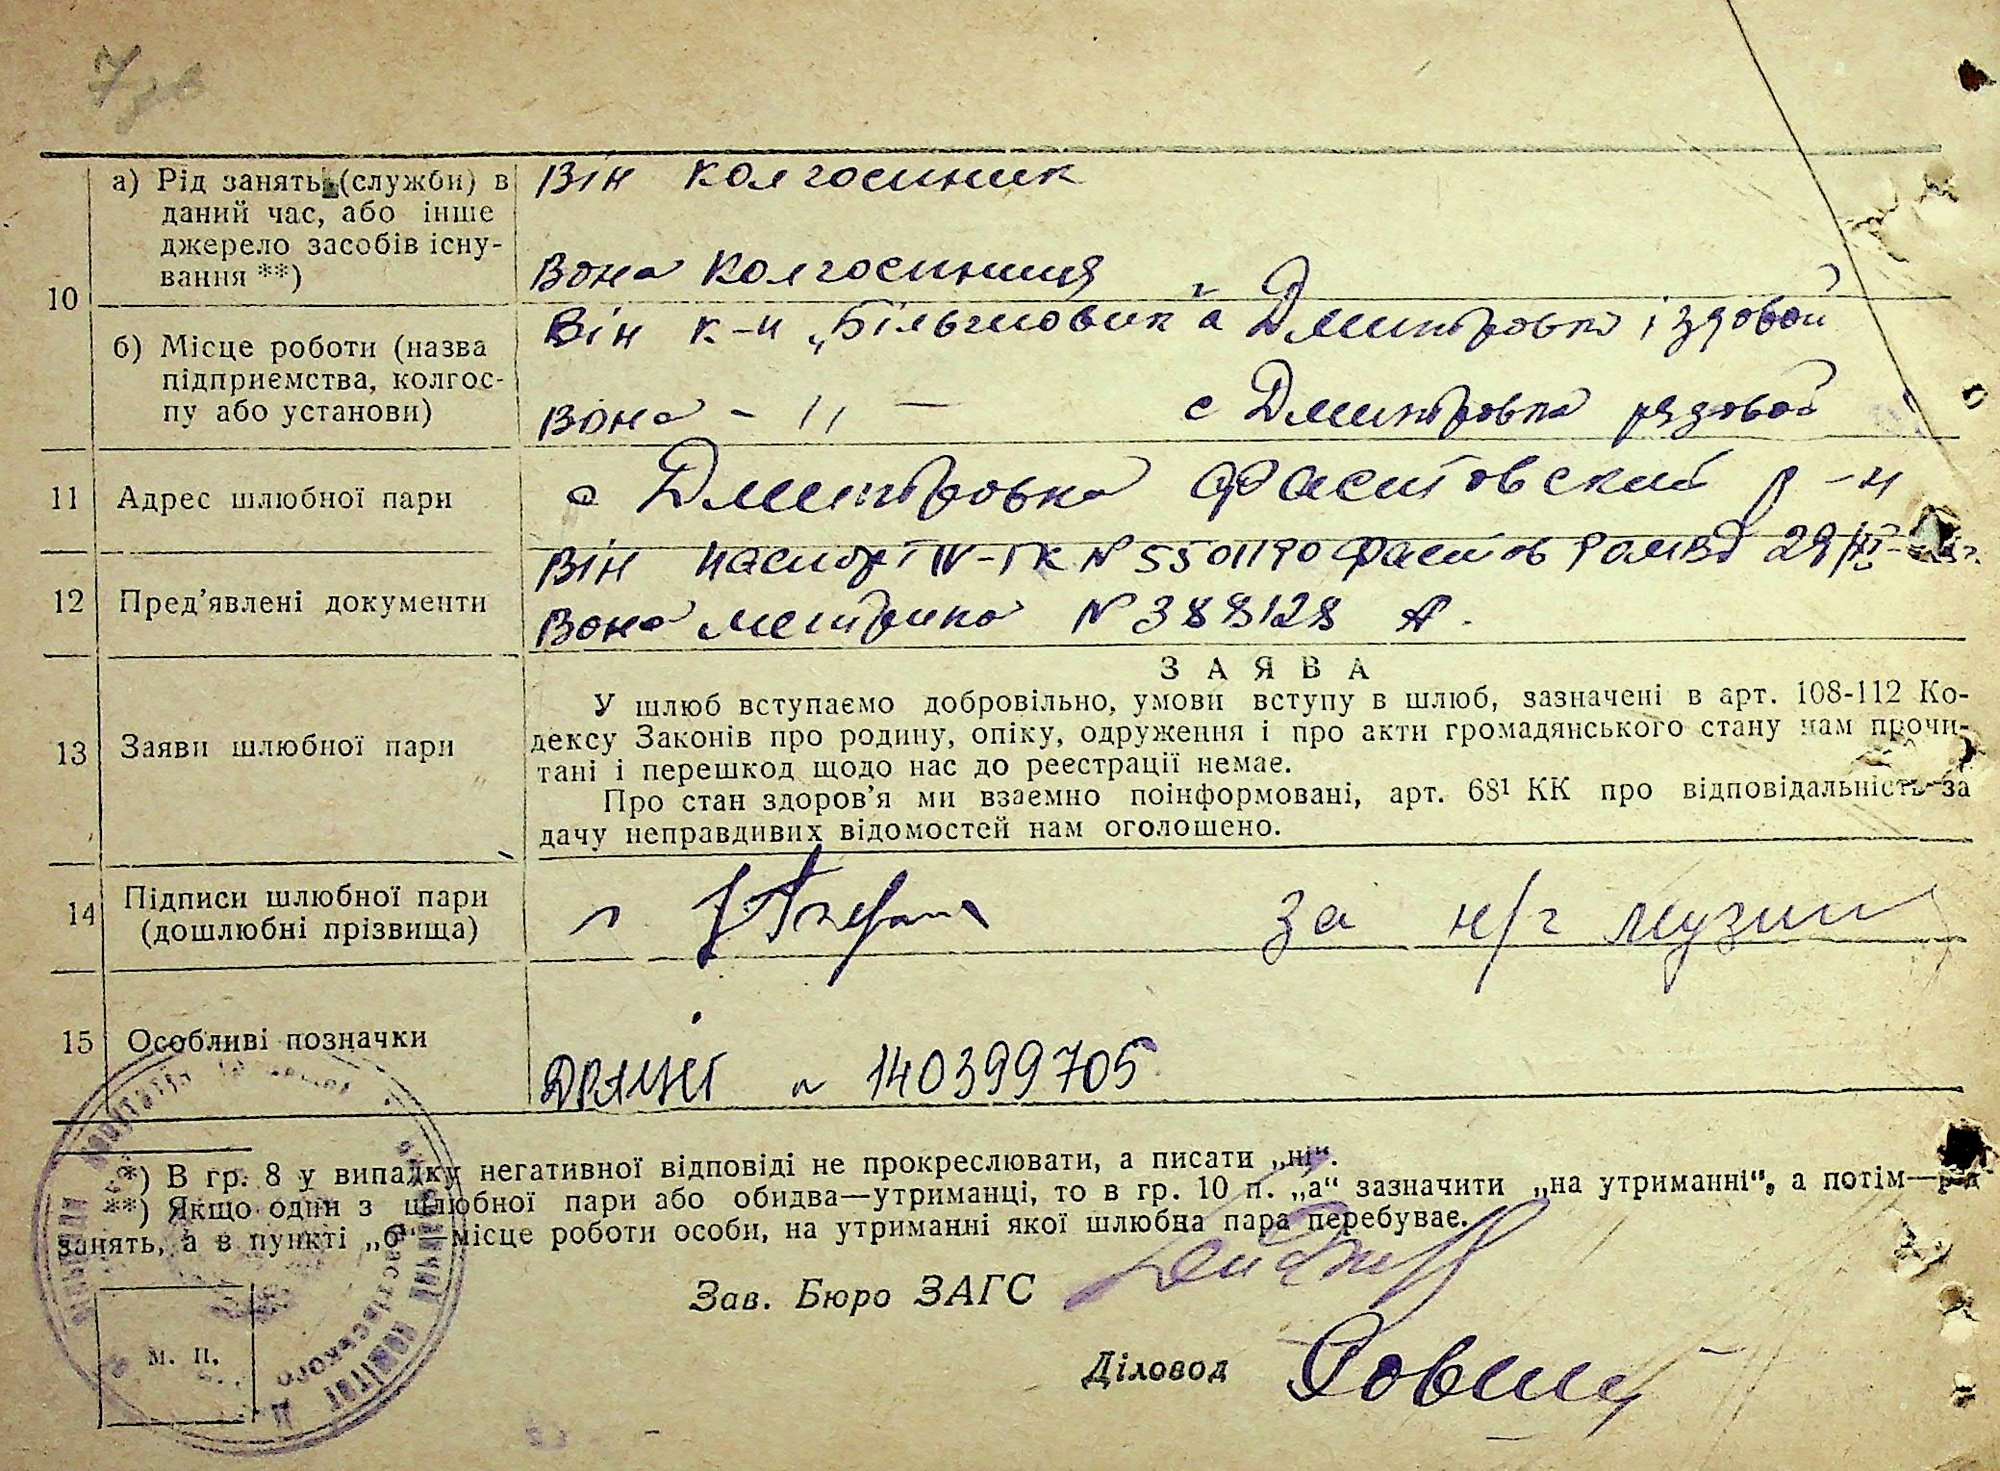 7
10
а) Рід занять (служби) в
даний час, або інше
джерело засобів існу-
вання **)
Він колгоспник
Вона колгоспниця
б) Місце роботи (назва
підприємства, колгос-
пу або установи)
Він к-п „Більшовик" с Дмитровка їздовой
Вона - 〃 - с Дмитровка рядовой
11 Адрес шлюбної пари
с Дмитровка Фастовский р-н
12 Пред'явлені документи
Він паспорт IV-ГК № 5501190 Фастов 29/XI-
Вона метрика № 388128 А.
13 Заяви шлюбної пари
ЗАЯВА
У шлюб вступаємо добровільно, умови вступу в шлюб, зазначені в арт. 108-112 Ко-
дексу Законів про родину, опіку, одруження і про акти громадянського стану нам прочи-
тані і перешкод щодо нас до реєстрації немає.
Про стан здоров'я ми взаємно поінформовані, арт. 68¹ КК про відповідальність за
дачу неправдивих відомостей нам оголошено.
14 Підписи шлюбної пари
(дошлюбні прізвища)
за н/г
15 Особливі позначки
№ 140399705
*) В гр. 8 у випадку негативної відповіді не прокреслювати, а писати „ні“.
**) Якщо один з шлюбної пари або обидва—утриманці, то в гр. 10 п. „а“ зазначити „на утриманні“, а потім—рід
занять, а в пункті „б“—місце роботи особи, на утриманні якої шлюбна пара перебуває.
Зав. Бюро ЗАГС
Діловод
м. п.